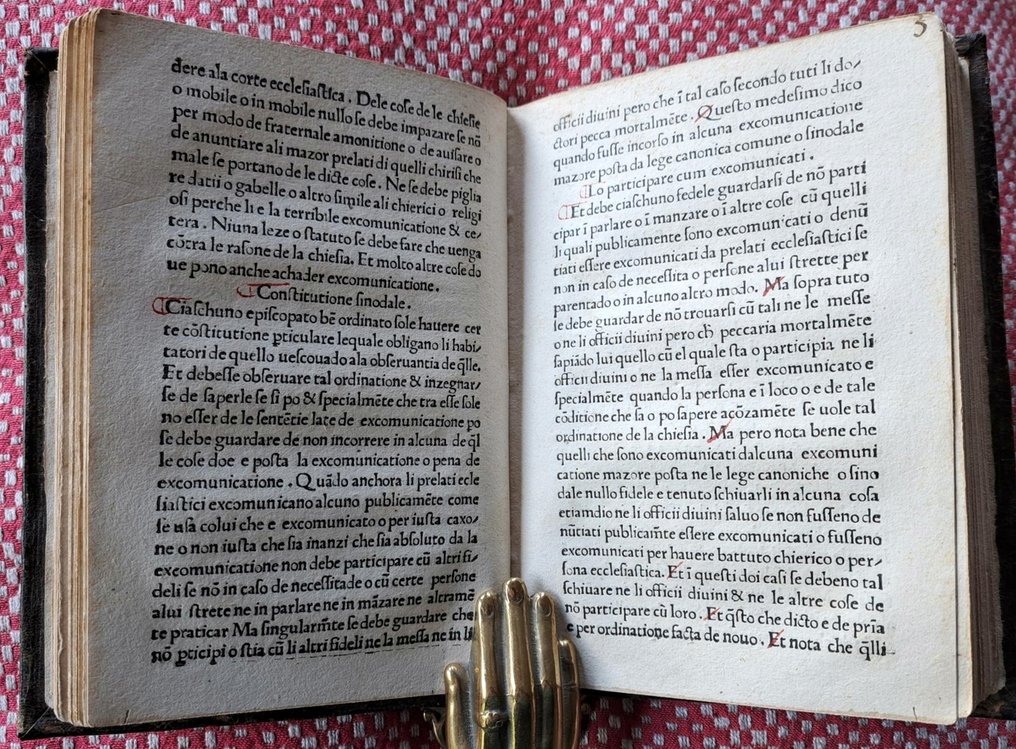 dere ala corte ecclesiastica . Dele cose de le chiesie
o mobile o in mobile nullo se debe impazare se nõ
per modo de fraternale amonitione o de auisare o
de anuntiare ali mazor prelati di quelli chirisi che
male se portano de le dicte cose . Ne se debe piglia
re datii o gabelle o altro simile ali chierici o religi
osi perche li e la terribile excomunicatione & ce/
tera . Niuna leze o statuto se debe fare che uenga
cõtra le rasone de la chiesia. Et molto altre cose do
ue pono anche achader excomunicatione.
¶Constitutione sinodale.
¶Ciaschuno episcopato bẽ ordinato sole hauere cer
te cõstitutione ꝑticulare lequale obligano li habi/
tatori de quello uescouado ala obseruantia de q̃lle.
Et debesse obseruare tal ordinatione & inzegnar/
se de saperle se si po & specialmẽte che tra esse sole
no esser de le sentẽtie late de excomunicatione po
se debe guardare de non incorrere in alcuna de q̃l
le cose doe e posta la excomunicatione o pena de
excomunicatione . Quãdo anchora li prelati eccle
siastici excomunicano alcuno publicamẽte come
se usa colui che e excomunicato o per iusta caxo/
ne o non iusta che sia inanzi che sia absoluto da la
excomunicatione non debe participare cũ altri fi/
deli se nõ in caso de necessitade o cũ certe persone
alui strete ne in parlare ne in mãzare ne altramẽ
te praticar Ma singularm̃te se debe guardare che
nõ ꝑticipi o stia cũ li altri fideli ne la messa ne in li
3
officii diuini pero che ĩ tal caso secondo tuti li do/
ctori pecca mortalmẽte . Questo medesimo dico
quando fusse incorso in alcuna excomunicatione
mazore posta da lege canonica comune o sinodale
¶Lo participare cum excomunicati .
¶Et debe ciaschuno fedele guardarsi de nõ parti
cipar ĩ parlare o ĩ manzare o ĩ altre cose cũ quelli
li quali publicamente sono excomunicati o denũ
tiati essere excomunicati da prelati ecclesiastici se
non in caso de necessita o persone alui strette per
parentado o in alcuno altro modo. Ma sopra tuto
se debe guardar de nõ trouarsi cũ tali ne le messe
o ne li officii diuini pero ch̃ peccaria mortalmẽte
sapiãdo lui quello cũ el quale sta o participia ne li
officii diuini o ne la messa esser excomunicato e
specialmẽte quando la persona e ĩ loco o e de tale
cõditione che sa o po sapere açõzamẽte se uole tal
ordinatione de la chiesia . Ma pero nota bene che
quelli che sono excomunicati dalcuna excomuni
catione mazore posta ne le lege canoniche o sino
dale nullo fidele e tenuto schiuarli in alcuna cosa
etiamdio ne li officii diuini saluo se non fusseno de
nũtiati publicam̃te essere excomunicati o fusseno
excomunicati per hauere battuto chierico o per/
sona ecclesiastica. Et ĩ questi doi casi se debeno tal
schiuare ne li officii diuini & ne le altre cose de
nõ participare cũ loro . Et q̃sto che dicto e de prĩa
e per ordinatione facta de nouo . Et nota che q̃lli